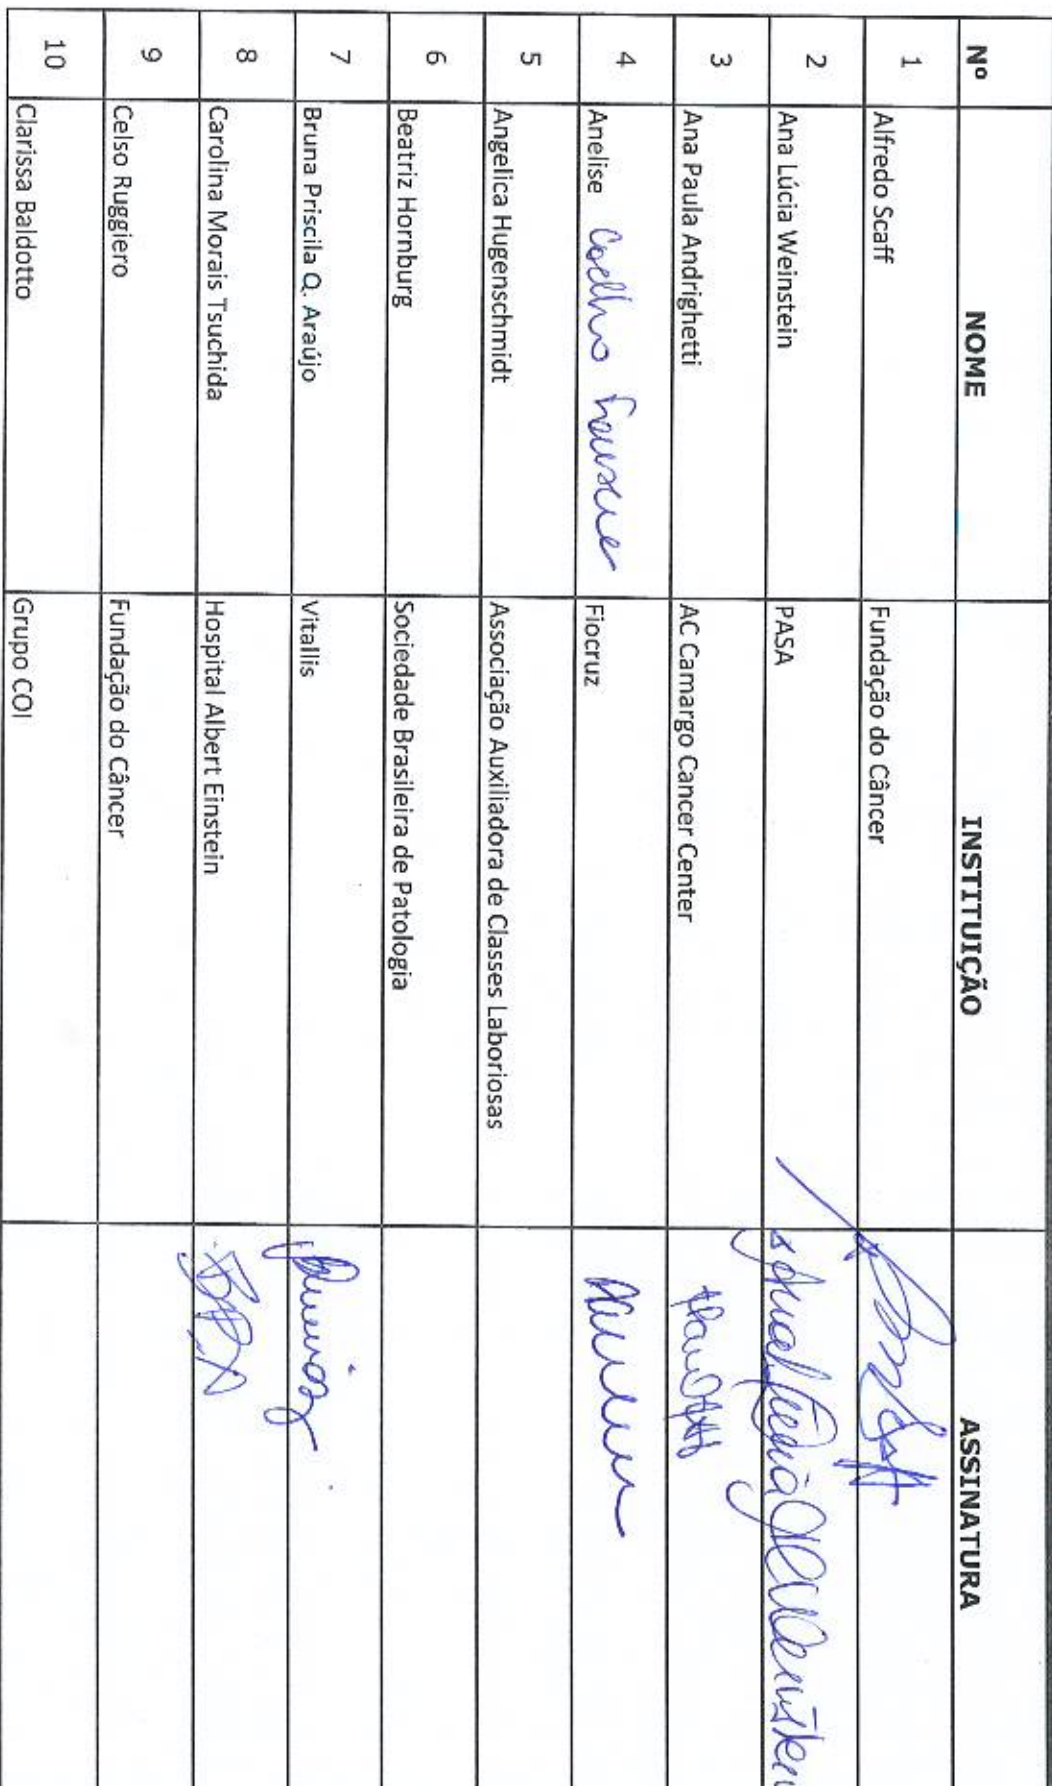 Nº NOME INSTITUIÇÃO ASSINATURA
1 Alfredo Scaff Fundação do Câncer
2 Ana Lúcia Weinstein PASA Ana Lúcia Weinstein
3 Ana Paula Andrighetti AC Camargo Cancer Center
4 Anelise Coelho Fiocruz
5 Angelica Hugenschmidt Associação Auxiliadora de Classes Laboriosas
6 Beatriz Hornburg Sociedade Brasileira de Patologia
7 Bruna Priscila Q. Araújo Vitallis
8 Carolina Morais Tsuchida Hospital Albert Einstein
9 Celso Ruggiero Fundação do Câncer
10 Clarissa Baldotto Grupo COI